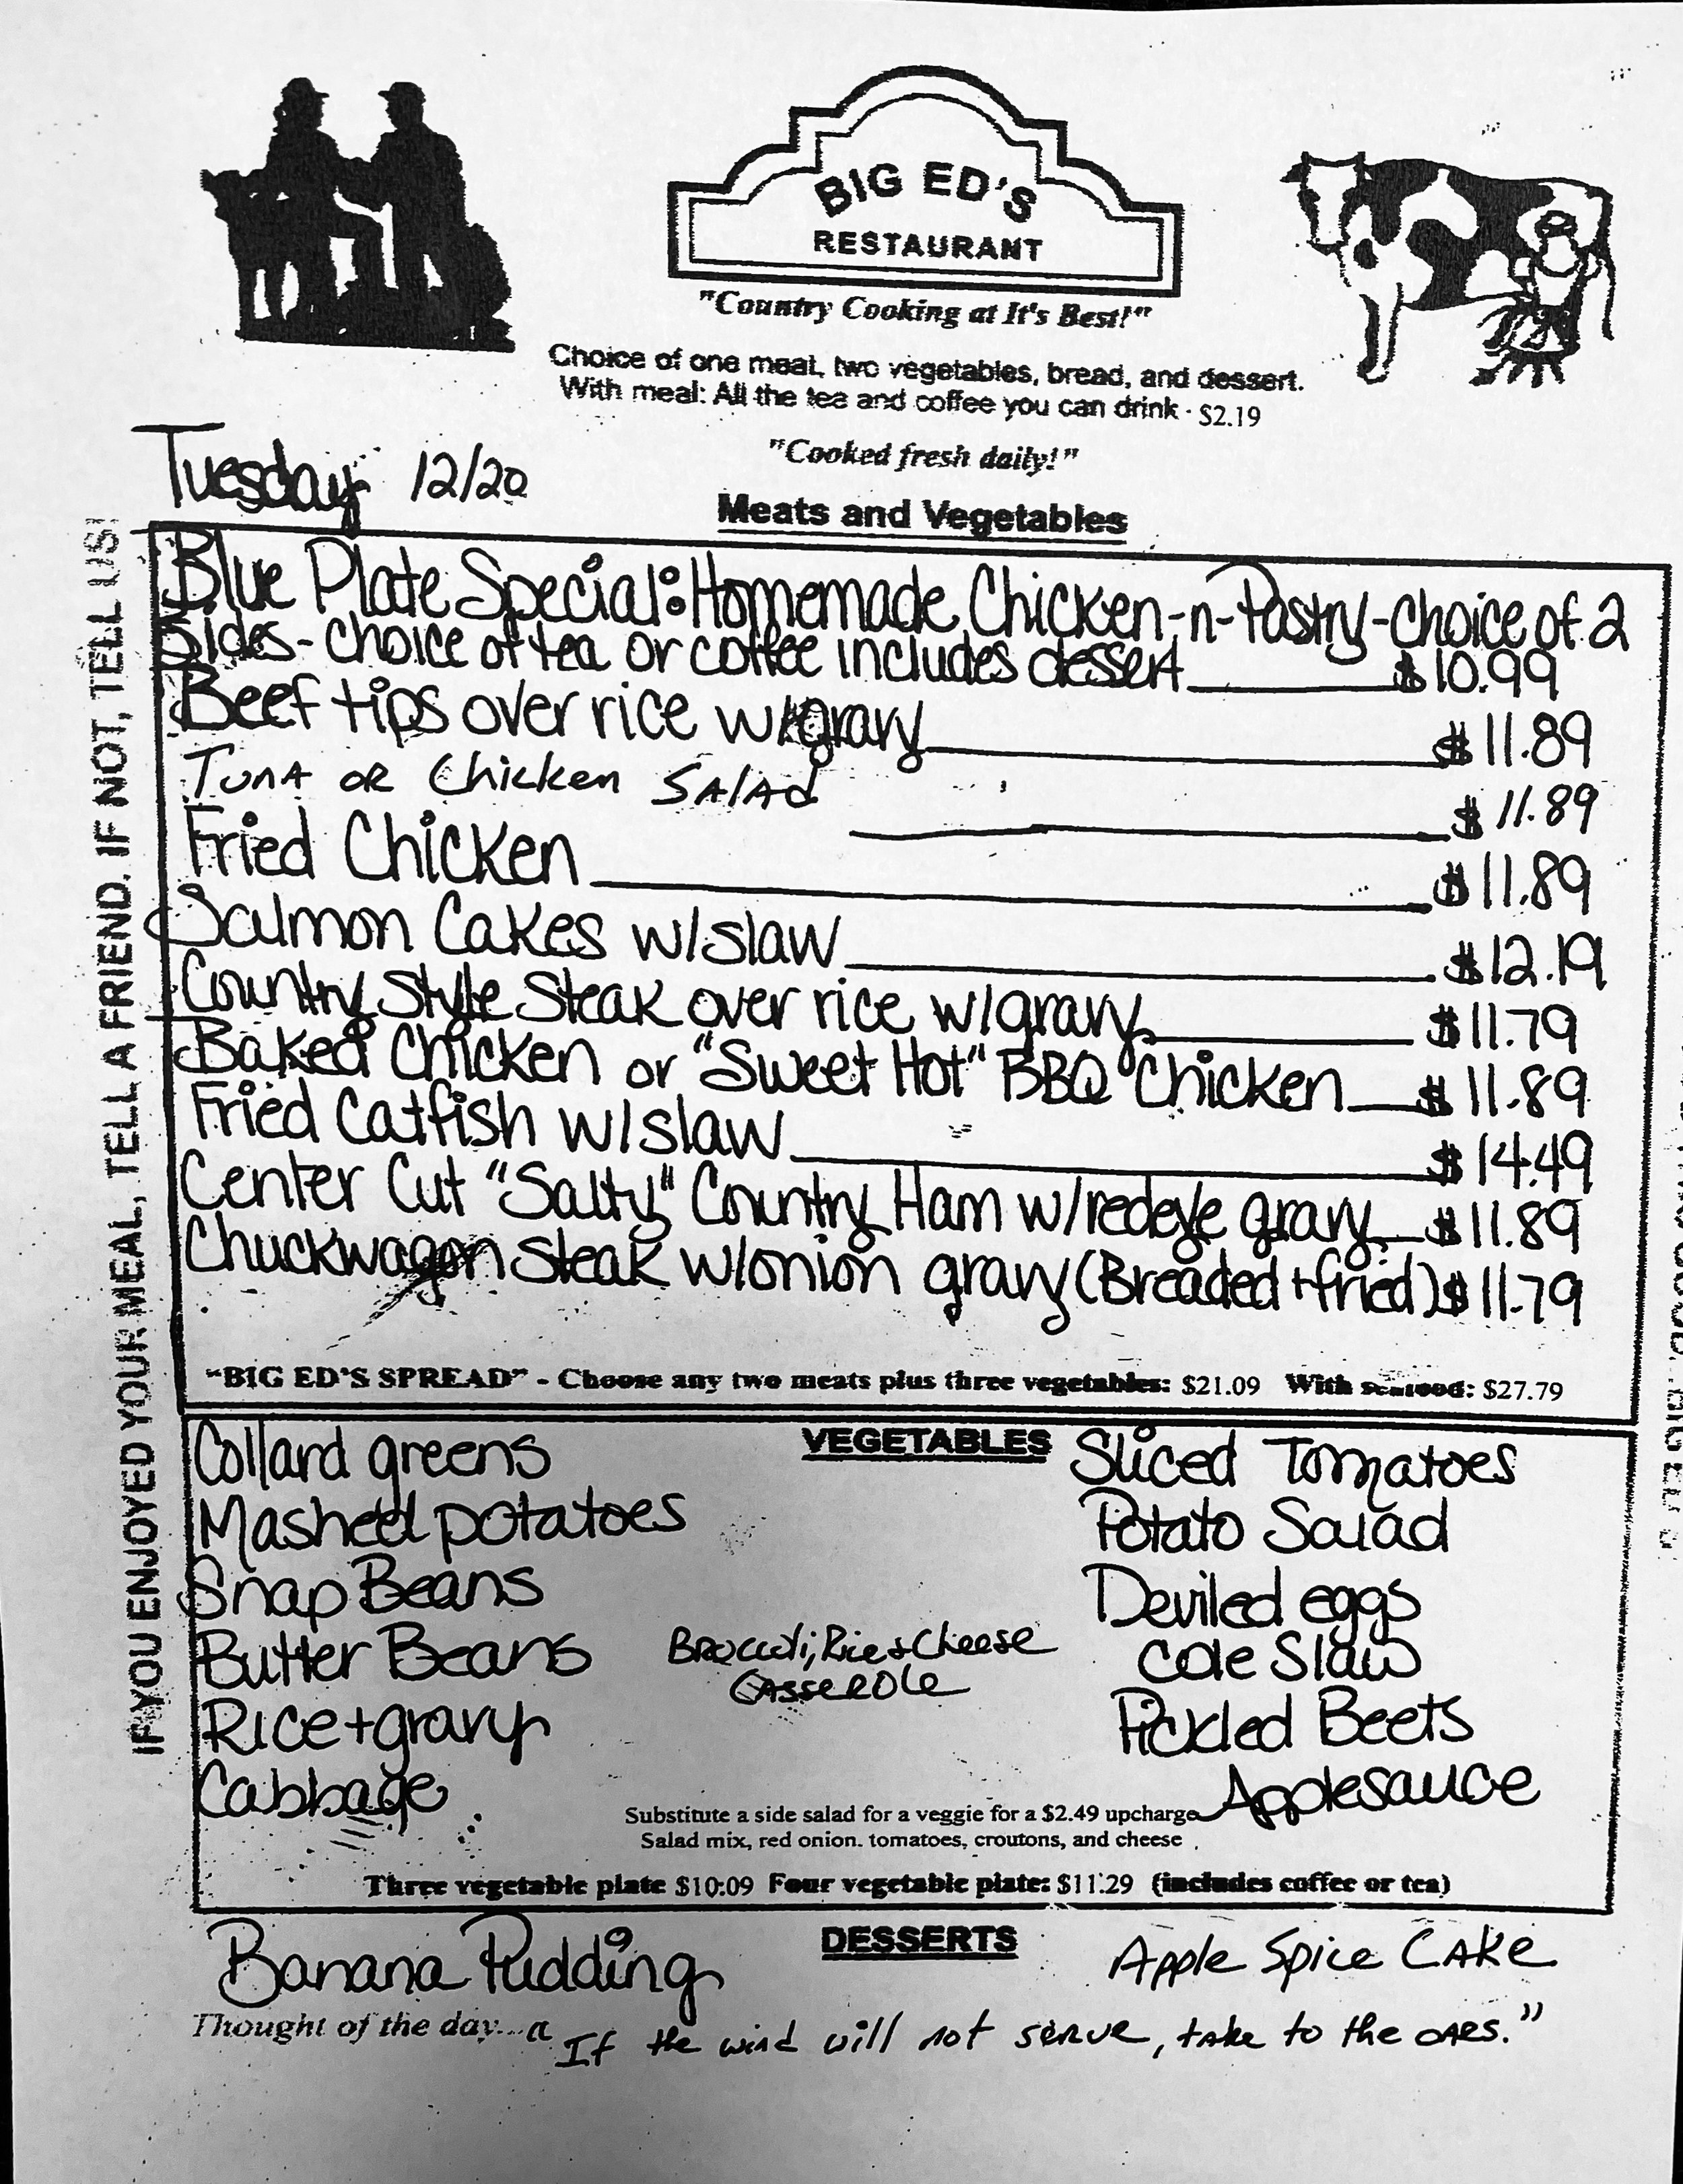 BIG ED'S
RESTAURANT
"Country Cooking at It's Best!"
Choice of one meat, two vegetables, bread, and dessert.
With meal: All the tea and coffee you can drink - $2.19
"Cooked fresh daily!"
Tuesday 12/20
Meats and Vegetables
IF YOU ENJOYED YOUR MEAL, TELL A FRIEND. IF NOT, TELL US!
Blue Plate Special: Homemade Chicken-n-Pastry-choice of 2
Sides-choice of tea or coffee includes dessert $10.99
Beef tips over rice w/gravy $11.89
Tuna or Chicken Salad $11.89
Fried Chicken $11.89
Salmon Cakes w/slaw $12.19
Country Style Steak over rice w/gravy $11.79
Baked Chicken or "Sweet Hot" BBQ Chicken $11.89
Fried Catfish w/slaw $14.49
Center Cut "Salty" Country Ham w/redeye gravy $11.89
Chuckwagon Steak w/onion gravy (Breaded + fried) $11.79
"BIG ED'S SPREAD" - Choose any two meats plus three vegetables: $21.09 With seafood: $27.79
VEGETABLES
Collard greens
Mashed potatoes
Snap Beans
Butter Beans
Rice + gravy
Cabbage
Broccoli, Rice & Cheese
Casserole
Sliced Tomatoes
Potato Salad
Deviled eggs
Cole Slaw
Pickled Beets
Applesauce
Substitute a side salad for a veggie for a $2.49 upcharge
Salad mix, red onion, tomatoes, croutons, and cheese
Three vegetable plate $10:09 Four vegetable plate: $11.29 (includes coffee or tea)
DESSERTS
Banana Pudding
Apple Spice Cake
Thought of the day... "If the wind will not serve, take to the oars."